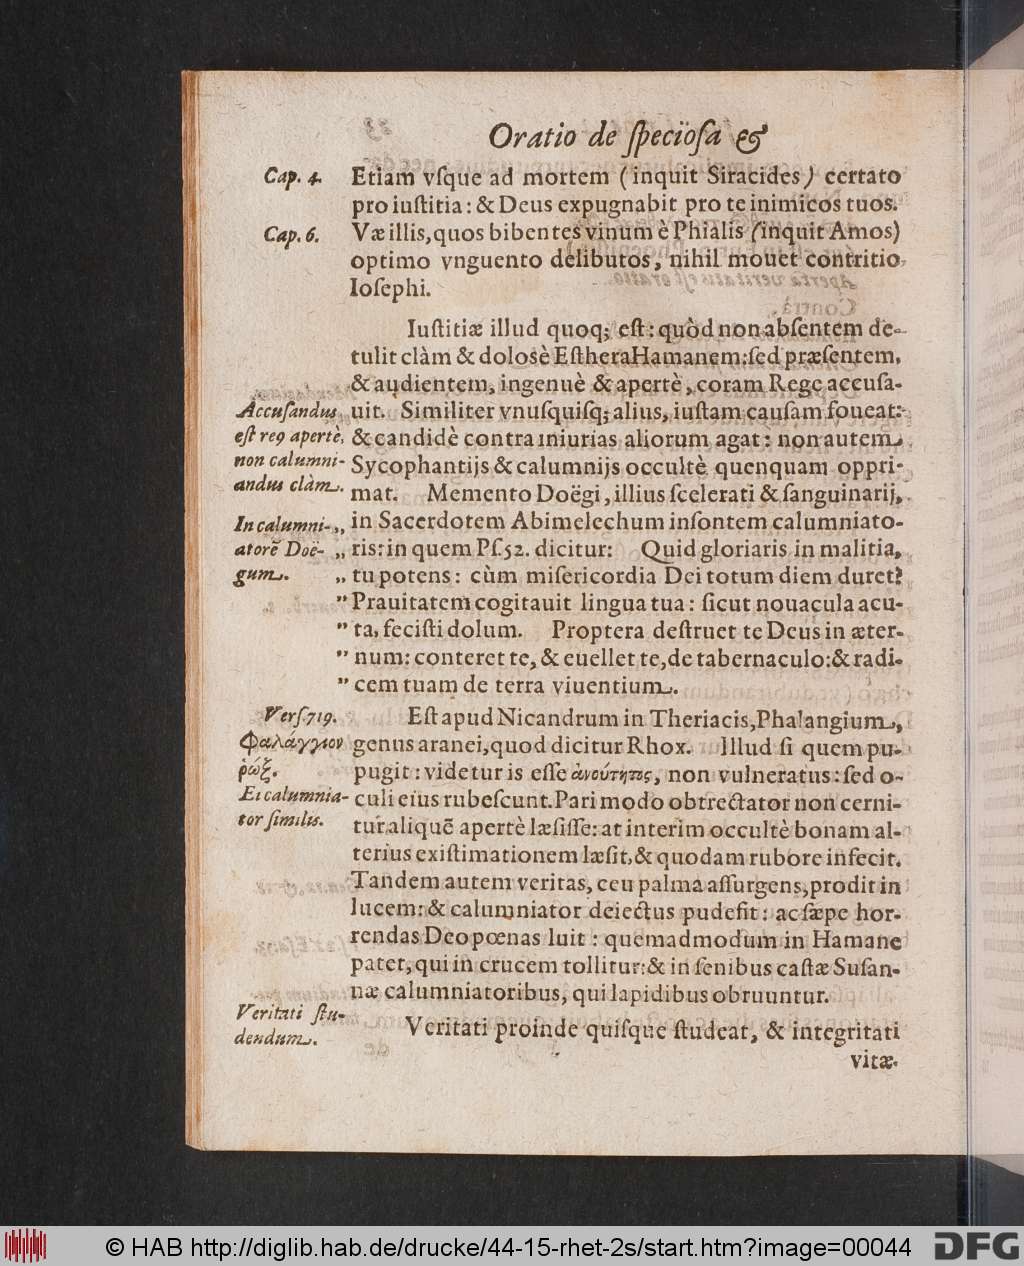 Oratio de ſpecioſa &
Cap. 4. Etiam vſque ad mortem (inquit Siracides) certato
pro iuſtitia: & Deus expugnabit pro te inimicos tuos.
Cap. 6. Væ illis, quos bibentes vinum è Phialis (inquit Amos)
optimo vnguento delibutos, nihil mouet contritio
Ioſephi.
Iuſtitiæ illud quoq; eſt: quòd non abſentem de-
tulit clàm & dolosè Eſthera Hamanem: ſed præſentem,
& audientem, ingenuè & apertè, coram Rege accuſa-
Accuſandus uit. Similiter vnuſquiſq; alius, iuſtam cauſam foueat:
eſt reꝰ apertè, & candidè contra iniurias aliorum agat: non autem
non calumni- Sycophantijs & calumnijs occultè quenquam oppri-
andus clàm. mat. Memento Doëgi, illius ſcelerati & ſanguinarij,
In calumni- „ in Sacerdotem Abimelechum inſontem calumniato-
atorẽ Doë- „ ris: in quem Pſ. 52. dicitur: Quid gloriaris in malitia,
gum. „ tu potens: cùm miſericordia Dei totum diem duret?
” Prauitatem cogitauit lingua tua: ſicut nouacula acu-
” ta, feciſti dolum. Proptera deſtruet te Deus in æter-
” num: conteret te, & euellet te, de tabernaculo: & radi-
” cem tuam de terra viuentium.
Verſ. 719. Eſt apud Nicandrum in Theriacis, Phalangium,
Φαλάγγιον genus aranei, quod dicitur Rhox. Illud ſi quem pu-
ῥώξ. pugit: videtur is eſſe ἀνούτητος, non vulneratus: ſed o-
Ei calumnia- culi eius rubeſcunt. Pari modo obtrectator non cerni-
tor ſimilis. tur aliquẽ apertè læſiſſe: at interim occultè bonam al-
terius exiſtimationem læſit, & quodam rubore infecit.
Tandem autem veritas, ceu palma aſſurgens, prodit in
lucem: & calumniator deiectus pudefit: ac ſæpe hor-
rendas Deo pœnas luit: quemadmodum in Hamane
patet, qui in crucem tollitur: & in ſenibus caſtæ Suſan-
næ calumniatoribus, qui lapidibus obruuntur.
Veritati ſtu-
dendum. Veritati proinde quiſque ſtudeat, & integritati
vitæ.
© HAB http://diglib.hab.de/drucke/44-15-rhet-2s/start.htm?image=00044 DFG